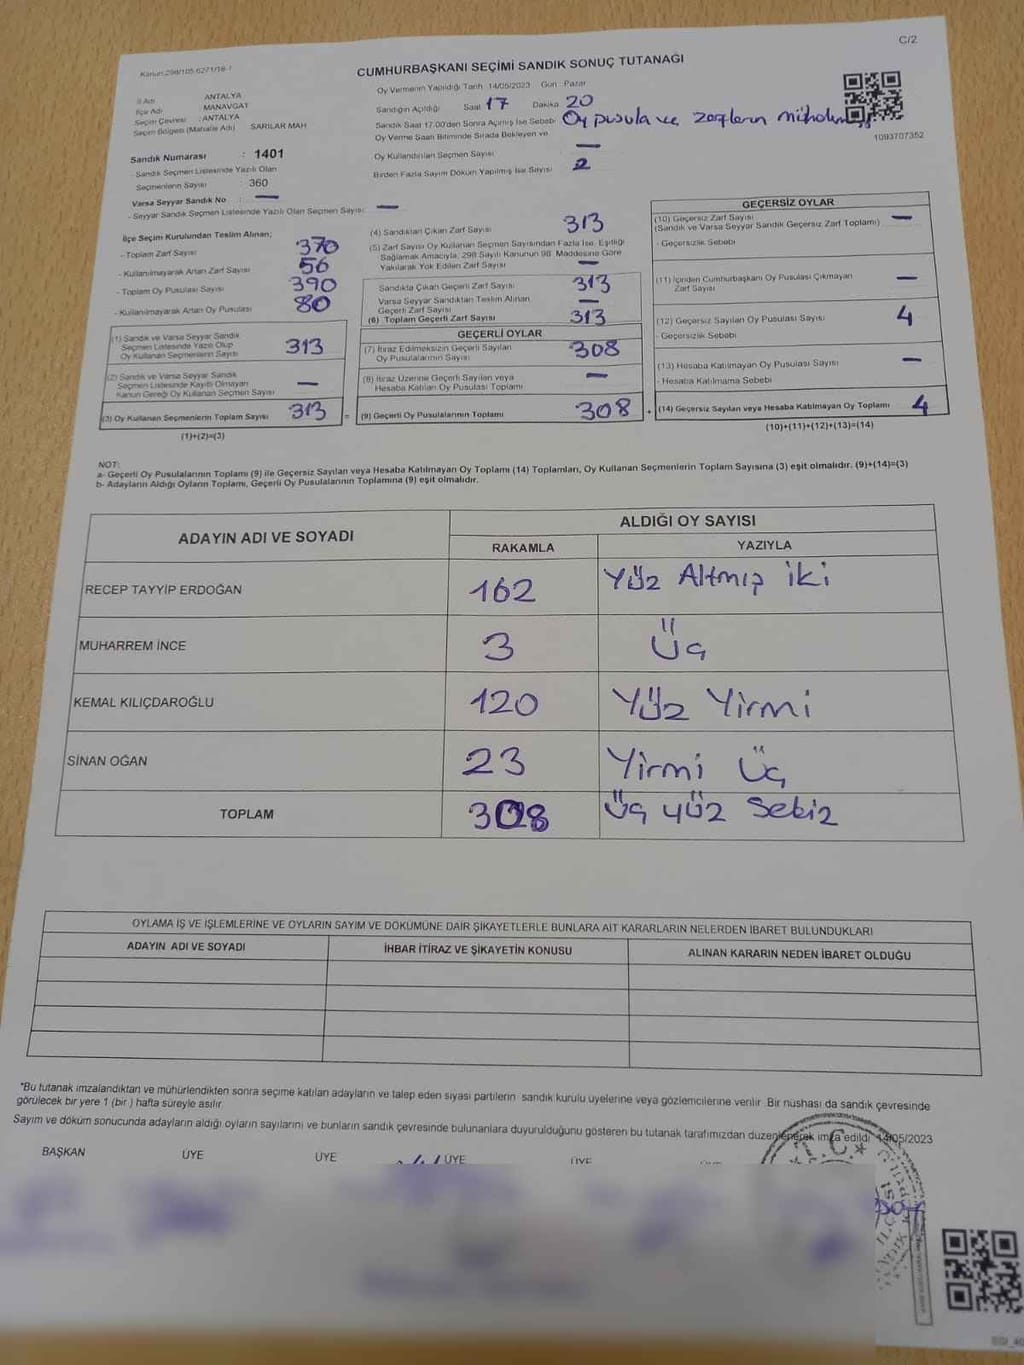 C/2
Kanun:298/105-6271/18-1
CUMHURBAŞKANI SEÇİMİ SANDIK SONUÇ TUTANAĞI
İl Adı : ANTALYA
İlçe Adı : MANAVGAT
Seçim Çevresi : ANTALYA
Seçim Bölgesi (Mahalle Adı) SARILAR MAH
Sandık Numarası : 1401
- Sandık Seçmen Listesinde Yazılı Olan
Seçmenlerin Sayısı : 360
Varsa Seyyar Sandık No : —
- Seyyar Sandık Seçmen Listesinde Yazılı Olan Seçmen Sayısı : —
Oy Vermenin Yapıldığı Tarih 14/05/2023 Gün : Pazar
Sandığın Açıldığı Saat 17 Dakika 20
Sandık Saat 17:00'den Sonra Açılmış İse Sebebi Oy pusula ve zarfların
Oy Verme Saati Bitiminde Sırada Bekleyen ve
Oy Kullandırılan Seçmen Sayısı —
Birden Fazla Sayım Döküm Yapılmış İse Sayısı 2
1093707352
İlçe Seçim Kurulundan Teslim Alınan;
- Toplam Zarf Sayısı 370
- Kullanılmayarak Artan Zarf Sayısı 56
- Toplam Oy Pusulası Sayısı 390
- Kullanılmayarak Artan Oy Pusulası 80
(1) Sandık ve Varsa Seyyar Sandık
Seçmen Listesinde Yazılı Olup
Oy Kullanan Seçmenlerin Sayısı 313
(2) Sandık ve Varsa Seyyar Sandık
Seçmen Listesinde Kayıtlı Olmayan
Kanun Gereği Oy Kullanan Seçmen Sayısı —
(3) Oy Kullanan Seçmenlerin Toplam Sayısı 313 =
(1)+(2)=(3)
(4) Sandıktan Çıkan Zarf Sayısı 313
(5) Zarf Sayısı Oy Kullanan Seçmen Sayısından Fazla İse, Eşitliği
Sağlamak Amacıyla, 298 Sayılı Kanunun 98. Maddesine Göre
Yakılarak Yok Edilen Zarf Sayısı —
Sandıkta Çıkan Geçerli Zarf Sayısı 313
Varsa Seyyar Sandıktan Teslim Alınan
Geçerli Zarf Sayısı —
(6) Toplam Geçerli Zarf Sayısı 313
GEÇERLİ OYLAR
(7) İtiraz Edilmeksizin Geçerli Sayılan
Oy Pusulalarının Sayısı 308
(8) İtiraz Üzerine Geçerli Sayılan veya
Hesaba Katılan Oy Pusulası Toplamı —
(9) Geçerli Oy Pusulalarının Toplamı 308 +
GEÇERSİZ OYLAR
(10) Geçersiz Zarf Sayısı —
(Sandık ve Varsa Seyyar Sandık Geçersiz Zarf Toplamı)
- Geçersizlik Sebebi
(11) İçinden Cumhurbaşkanı Oy Pusulası Çıkmayan
Zarf Sayısı —
(12) Geçersiz Sayılan Oy Pusulası Sayısı 4
- Geçersizlik Sebebi
(13) Hesaba Katılmayan Oy Pusulası Sayısı —
- Hesaba Katılmama Sebebi
(14) Geçersiz Sayılan veya Hesaba Katılmayan Oy Toplamı 4
(10)+(11)+(12)+(13)=(14)
NOT:
a- Geçerli Oy Pusulalarının Toplamı (9) ile Geçersiz Sayılan veya Hesaba Katılmayan Oy Toplamı (14) Toplamları, Oy Kullanan Seçmenlerin Toplam Sayısına (3) eşit olmalıdır. (9)+(14)=(3)
b- Adayların Aldığı Oyların Toplamı, Geçerli Oy Pusulalarının Toplamına (9) eşit olmalıdır.
ADAYIN ADI VE SOYADI
ALDIĞI OY SAYISI
RAKAMLA YAZIYLA
RECEP TAYYİP ERDOĞAN 162 Yüz Altmış iki
MUHARREM İNCE 3 Üç
KEMAL KILIÇDAROĞLU 120 Yüz Yirmi
SİNAN OĞAN 23 Yirmi Üç
TOPLAM 308 Üç yüz Sekiz
OYLAMA İŞ VE İŞLEMLERİNE VE OYLARIN SAYIM VE DÖKÜMÜNE DAİR ŞİKAYETLERLE BUNLARA AİT KARARLARIN NELERDEN İBARET BULUNDUKLARI
ADAYIN ADI VE SOYADI İHBAR İTİRAZ VE ŞİKAYETİN KONUSU ALINAN KARARIN NEDEN İBARET OLDUĞU
*Bu tutanak imzalandıktan ve mühürlendikten sonra seçime katılan adayların ve talep eden siyasi partilerin sandık kurulu üyelerine veya gözlemcilerine verilir. Bir nüshası da sandık çevresinde
görülecek bir yere 1 (bir ) hafta süreyle asılır.
Sayım ve döküm sonucunda adayların aldığı oyların sayılarını ve bunların sandık çevresinde bulunanlara duyurulduğunu gösteren bu tutanak tarafımızdan düzenlenerek imza edildi. 14/05/2023
BAŞKAN ÜYE ÜYE ÜYE ÜYE
T.C.